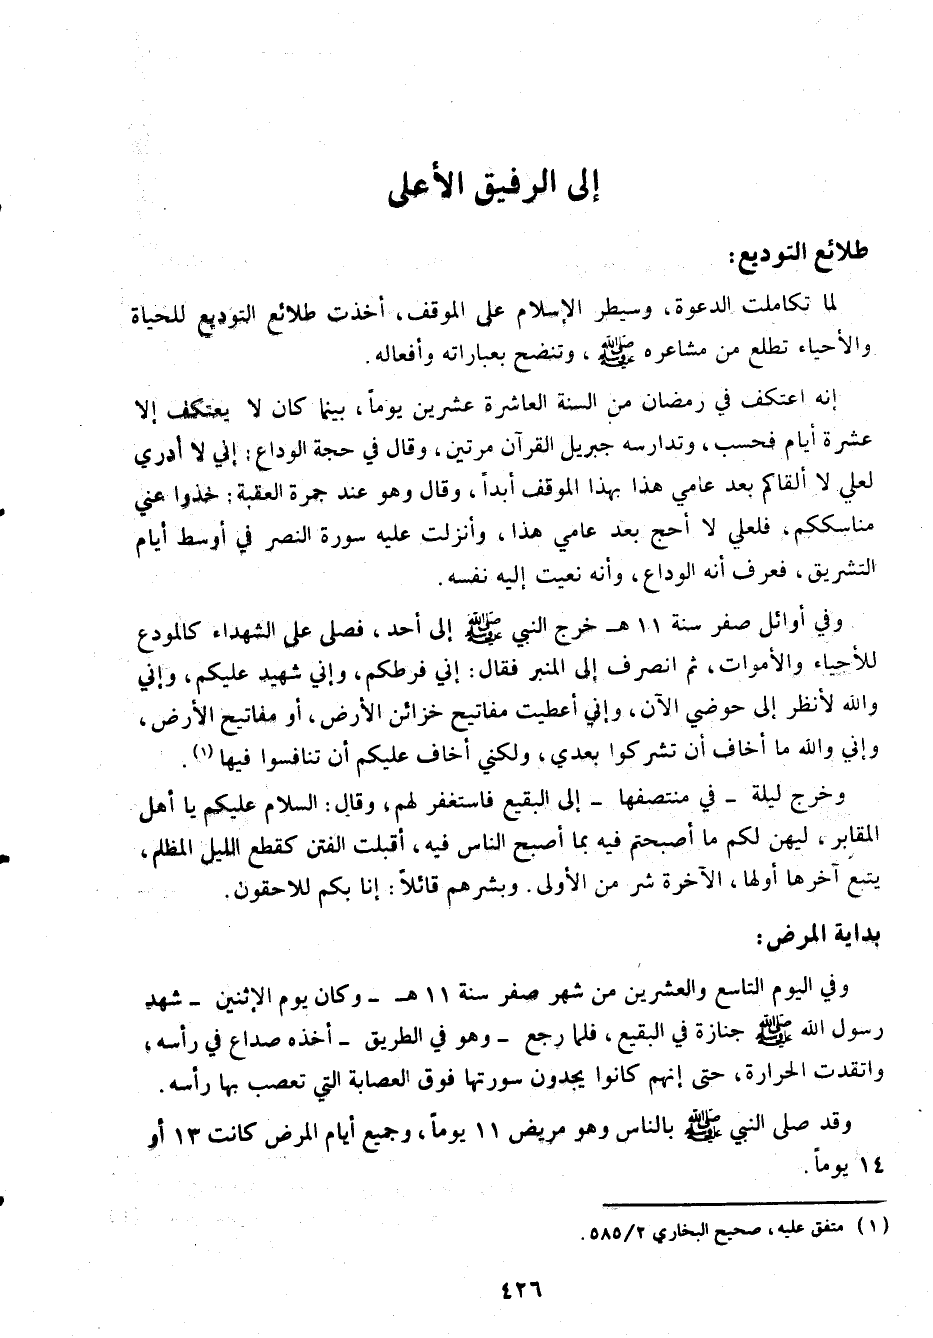 إلى الرفيق الأعلى
طلائع التوديع:
لما تكاملت الدعوة، وسيطر الإسلام على الموقف، أخذت طلائع التوديع للحياة
والأحياء تطلع من مشاعره ﷺ، وتنضح بعباراته وأفعاله.
إنه اعتكف في رمضان من السنة العاشرة عشرين يوماً، بينما كان لا يعتكف إلا
عشرة أيام فحسب، وتدارسه جبريل القرآن مرتين، وقال في حجة الوداع: إني لا أدري
لعلي لا ألقاكم بعد عامي هذا بهذا الموقف أبداً، وقال وهو عند جمرة العقبة: خذوا عني
مناسككم، فلعلي لا أحج بعد عامي هذا، وأنزلت عليه سورة النصر في أوسط أيام
التشريق، فعرف أنه الوداع، وأنه نعيت إليه نفسه.
وفي أوائل صفر سنة ١١ هـ خرج النبي ﷺ إلى أحد، فصلى على الشهداء كالمودع
للأحياء والأموات، ثم انصرف إلى المنبر فقال: إني فرطكم، وإني شهيد عليكم، وإني
والله لأنظر إلى حوضي الآن، وإني أعطيت مفاتيح خزائن الأرض، أو مفاتيح الأرض،
وإني والله ما أخاف أن تشركوا بعدي، ولكني أخاف عليكم أن تنافسوا فيها (١).
وخرج ليلة - في منتصفها - إلى البقيع فاستغفر لهم، وقال: السلام عليكم يا أهل
المقابر، ليهن لكم ما أصبحتم فيه بما أصبح الناس فيه، أقبلت الفتن كقطع الليل المظلم،
يتبع آخرها أولها، الآخرة شر من الأولى. وبشرهم قائلاً: إنا بكم للاحقون.
بداية المرض:
وفي اليوم التاسع والعشرين من شهر صفر سنة ١١ هـ - وكان يوم الإثنين - شهد
رسول الله ﷺ جنازة في البقيع، فلما رجع - وهو في الطريق - أخذه صداع في رأسه،
واتقدت الحرارة، حتى إنهم كانوا يجدون سورتها فوق العصابة التي تعصب بها رأسه.
وقد صلى النبي ﷺ بالناس وهو مريض ١١ يوماً، وجميع أيام المرض كانت ١٣ أو
١٤ يوماً.
(١) متفق عليه، صحيح البخاري ٥٨٥/٢.
٤٢٦